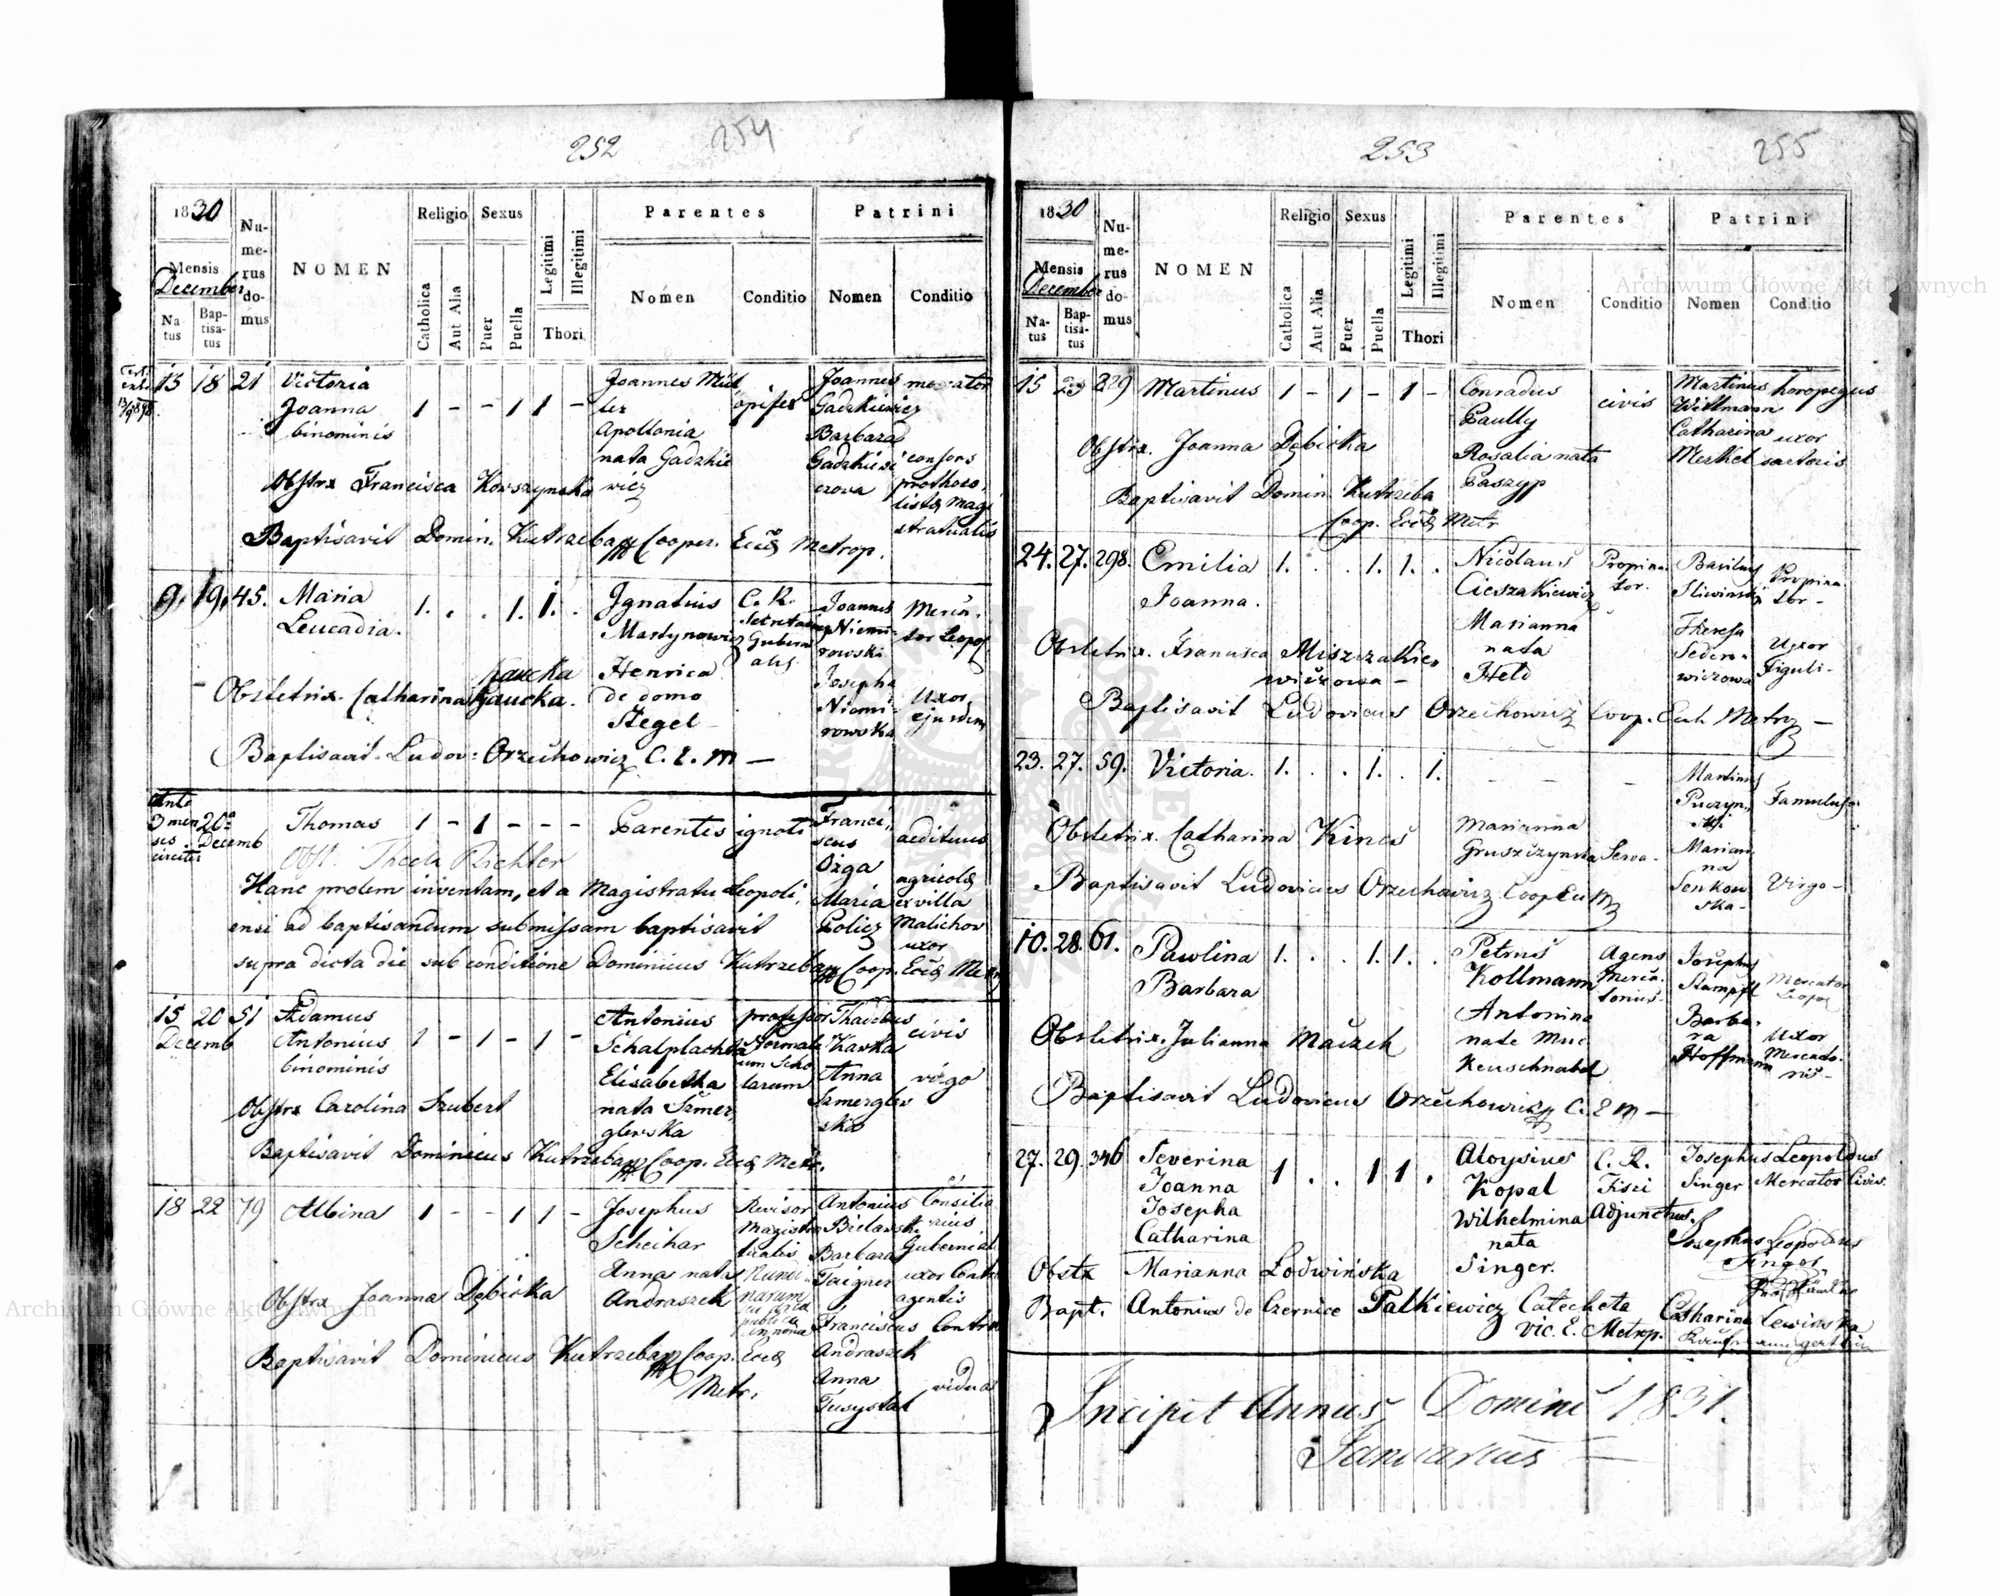 252 254
1830
Mensis
December
Natus
Baptisatus
Numerus domus
NOMEN
Religio
Catholica
Aut Alia
Sexus
Puer
Puella
Legitimi
Illegitimi
Thori
Parentes
Nomen
Conditio
Patrini
Nomen
Conditio
15 18 21 Victoria
Joanna
binominis
1 - - 1 1 -
Joannes Mül
ler
Apollonia
nata Gadzkie
wicz
opifex
Joannes
Gadzkiewicz
Barbara
mercator
consors
Obstrx Francisca Korszynska
Baptisavit Domin. Kutrzeba Cooper. Eccl Metrop.
9. 19. 45. Maria
Leucadia.
1. . . 1. 1. .
Ignatius
Martynowicz
Henrica
de domo
Hegel
C. R.
Joannes
Niemi-
rowski
Josepha
Niemi-
rowska
Merca-
tor Leopol
Uxor
ejusdem
Gaucka
Obstetrix. Catharina Gaucka.
Baptisavit. Ludov: Orzechowicz C. E. M —
Ante
3 men
ses
circiter
20a
Decemb
Thomas 1 - 1 - - -
Parentes ignoti
Franci-
scus
Oiga
Maria
aedituus
agricola
ex villa
Malichov
uxor
Obst. Thecla Richter
Hanc prolem inventam, et a Magistratu Leopoli,
ensi ad baptisandum submissam baptisavit
supra dicta die sub conditione Dominicus Kutrzeba Coop. Eccl Metr
15 20 51 Adamus
Decemb Antonius
binominis
1 - 1 - 1 -
Antonius
Schalplachta
Elisabetha
nata Szmer,
glerska
professor
Normali
um Scho
larum
Thadeus
Kawka
Anna
Szmergler
ska
civis
virgo
Obstrx Carolina Szubert
Baptisavit Dominicus Kutrzeba Coop. Eccl Metr.
18 22 79 Albina 1 - - 1 1 -
Josephus
Scheihar
Anna nata
Andraszek
Revisor
Magist
tralis
Antonius
Bielawski
Barbara
Taigner
Franciscus
Andraszek
Anna
Consilia
rius
Gubernial
uxor Contra
agentis
vidua
Obstrx Joanna Dębicka
Baptisavit Dominicus Kutrzeba Coop. Eccl
Metr.
253 255
1830
Mensis
December
Natus
Baptisatus
Numerus domus
NOMEN
Religio
Catholica
Aut Alia
Sexus
Puer
Puella
Legitimi
Illegitimi
Thori
Parentes
Nomen
Conditio
Patrini
Nomen
Conditio
15 23 829 Martinus 1 - 1 - 1 -
Conradus
Paully
Rosalia nata
Paszyp
civis
Martinus
Wittmann
Catharina
Merkel
horopegus
uxor
sartoris
Obstrx. Joanna Dębicka
Baptisavit Domin. Kutrzeba
Coop. Eccl Metr
24. 27. 298. Emilia
Joanna.
1. . . 1. 1. .
Nicolaus
Cieszakiewicz
Marianna
nata
Held
Propina-
tor.
Basilius
Sliwinski
Theresa
Sedero-
wiczowa
Propina
tor -
Uxor
Figuli-
Obstetrix. Francisca Miszczakie
wiczowa -
Baptisavit Ludovicus Orzechowicz Coop. Eccl. Metrp —
23. 27. 59. Victoria. 1. . . 1. . 1.
Marianna
Gruszczynska Serva-
Martinus
Puczyn,
ski
Marian
na
Senkow
ska-
Famulus
Virgo-
Obstetrix. Catharina Kinas
Baptisavit Ludovicus Orzechowicz Coop Ecc M
10. 28. 61. Pawlina
Barbara
1. . . 1. 1. .
Petrus
Kollmann
Antonina
nate Muc
Keuschnabel
Agens
Merca-
torius-
Josephus
Stampfl
Barba-
ra
Hoffmann
Mercator
Leopol
Uxor
Mercato-
ris-
Obstetrix. Julianna Maczek
Baptisavit Ludovicus Orzechowicz C. E M —
27. 29. 346 Severina
Joanna
Josepha
Catharina
1 . . 1 1 .
Aloysius
Kopal
Wilhelmina
nata
Singer.
C. R.
Fisci
Adjunctus.
Josephus Leopoldus
Singer Mercator Civis.
Josephus Leopoldus
Singer
Catharina Lewinska
Obstx Marianna Lodwińska
Bapt. Antonius de Czernice Palkiewicz Catecheta
vic. E. Metrop.
Incipit Annus Domini 1831.
Januarius —
Archiwum Główne Akt Dawnych
Archiwum Główne Akt Dawnych